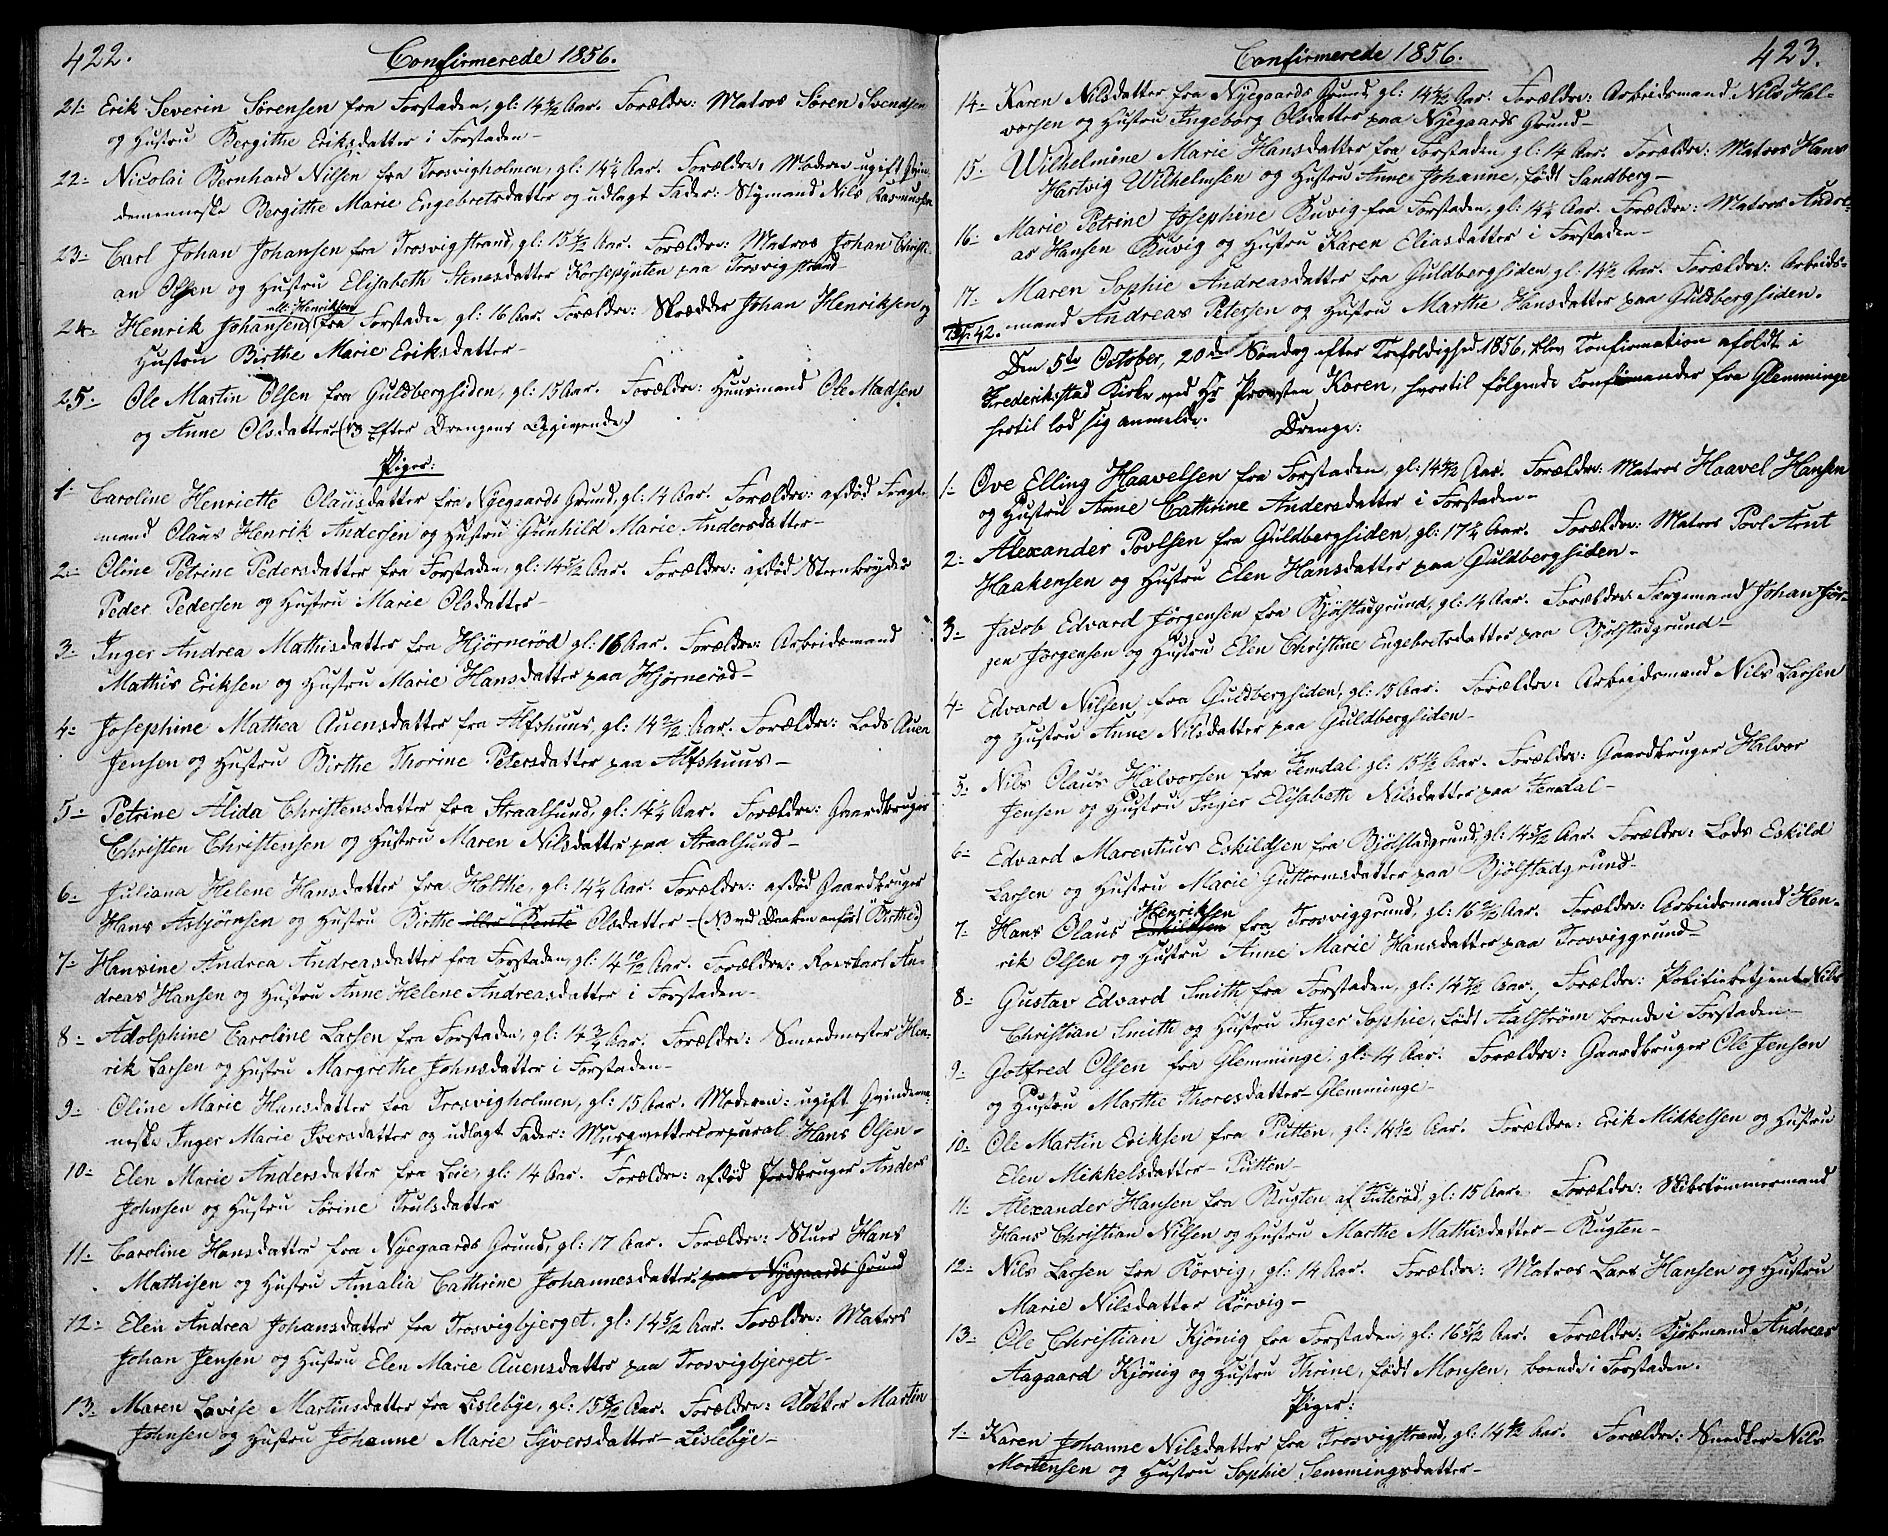 422.
Confirmerede 1856.
21- Erik Severin Sörensen fra Forstaden, gl: 14 Aar. Forældre: Matros Sören Svendsen
og Hustru Bergithe Eriksdatter i Forstaden-
22- Nicolai Bernhard Nilsen fra Trosvigholmen, gl: 14½ Aar. Forældre: Moderen ugift Qvin-
demenneske Bergithe Marie Engebretsdatter og udlagt Fader: Styrmand Nils Rasmussen
23- Carl Johan Johansen fra Trosvigstrand, gl: 15 Aar. Forældre: Matros Johan Christi-
an Olsen og Hustru Elisabeth Stenesdatter Korsepynten paa Trosvigstrand-
ell: Henriksen
24- Henrik Johansen fra Forstaden gl: 16 Aar. Forældre: Skrædder Johan Henriksen og
Hustru Birthe Marie Eriksdatter-
25- Ole Martin Olsen fra Guldbergsiden, gl: 15 Aar. Forældre: Huusmand Ole Madsen
og Anne Olsdatter. (NB Efter Drengens Opgivende)
Piger:
1- Caroline Henriette Olausdatter fra Nyegaards Grund, gl: 14 Aar. Forældre: afdød Fragt-
mand Olaus Henrik Andersen og Hustru Gunhild Marie Andersdatter-
2- Oline Petrine Pedersdatter fra Forstaden, gl: 14 5/12 Aar. Forældre: afdød Steenbryder
Peder Pedersen og Hustru Marie Olsdatter-
3- Inger Andrea Mathisdatter fra Hjörneröd gl: 16 Aar. Forældre: Arbeidsmand
Mathis Eriksen og Hustru Marie Hansdatter paa Hjörneröd-
4- Josephine Mathea Auensdatter fra Alfshuus, gl: 14 Aar. Forældre: Lods Auen
Jensen og Hustru Birthe Thorine Petersdatter paa Alfshuus-
5- Petrine Alida Christensdatter fra Straalsund, gl: 14¼ Aar. Forældre: Gaardbruger
Christen Christensen og Hustru Maren Nilsdatter paa Straalsund-
6- Juliana Helene Hansdatter fra Holthe, gl: 14¼ Aar. Forældre: afdød Gaardbruger
Hans Asbjørnsen og Hustru Birthe eller "Bente" Olsdatter- (NB ved Daaben anført "Birthe")
7- Hansine Andrea Andreasdatter fra Forstaden, gl: 14 Aar. Forældre: Roerskarl An-
dreas Hansen og Hustru Anne Helene Andreasdatter i Forstaden-
8- Adolphine Caroline Larsen fra Forstaden, gl: 14¾ Aar. Forældre: Smedmester Hen-
rik Larsen og Hustru Margrethe Johnsdatter i Forstaden-
9- Oline Marie Hansdatter fra Trosvigholmen, gl: 15 Aar. Moderen: ugift Qvindemen-
neske Inger Marie Iversdatter og udlagt Fader: Musquettercorporal Hans Olsen-
10- Elen Marie Andersdatter fra Lie, gl: 14 Aar. Forældre: afdød Jordbruger Anders
Johnsen og Hustru Sörine Trulsdatter
11- Caroline Hansdatter fra Nyegaards Grund, gl: 17 Aar. Forældre: Stuer Hans
Mathisen og Hustru Amalia Cathrine Johannesdatter. paa Nyegaards Grund
12- Elen Andrea Johansdatter fra Trosvigbjerget, gl: 14 5/12 Aar. Forældre: Matros
Johan Jensen og Hustru Elen Marie Auensdatter paa Trosvigbjerget-
13- Maren Lovise Martinsdatter fra Lislebye, gl: 15 Aar. Forældre: Klokker Martin
Johnsen og Hustru Johanne Marie Syversdatter- Lislebye-
423.
Confirmerede 1856.
14- Karen Nilsdatter fra Nyegaards Grund, gl: 14 Aar. Forældre: Arbeidsmand Nils Hal-
vorsen og Hustru Ingeborg Olsdatter paa Nyegaards Grund-
15- Wilhelmine Marie Hansdatter fra Forstaden, gl: 14 Aar. Forældre: Matros Hans
Hartvig Wilhelmsen og Hustru Anne Johanne, født Sandberg-
16- Marie Petrine Josephine Buvig fra Forstaden, gl: 14¼ Aar. Forældre: Matros Andre-
as Hansen Buvig og Hustru Karen Eliasdatter i Forstaden-
17- Maren Sophie Andreasdatter fra Guldbergsiden gl: 14½ Aar. Forældre: Arbeids-
mand Andreas Petersen og Hustru Marthe Hansdatter paa Guldbergsiden.
42.
Den 5te October, 20de Søndag efter Trefoldighed 1856, blev Confirmation afoldt i
Frederikstad Kirke ved Hr Provsten Koren, hvortil følgende Confirmander fra Glemminge
hertil lod sig anmelde.
Drenge:
1- Ove Elling Haavelsen fra Forstaden, gl: 14 Aar. Forældre: Matros Haavel Hansen
og Hustru Anne Cathrine Andersdatter i Forstaden-
2- Alexander Povlsen fra Guldbergsiden, gl: 17¼ Aar. Forældre: Matros Povl Arnt
Haakensen og Hustru Elen Hansdatter paa Guldbergsiden-
3- Jacob Edvard Jörgensen fra Bjölstadgrund, gl: 14 Aar. Forældre: Færgemand Johan Jör-
gen Jörgensen og Hustru Elen Christine Engebretsdatter paa Bjölstadgrund-
4- Edvard Nilsen fra Guldbergsiden, gl: 15 Aar. Forældre: Arbeidsmand Nils Larsen
og Hustru Anne Nilsdatter paa Guldbergsiden-
5- Nils Olaus Halvorsen fra Femdal, gl: 15 Aar. Forældre: Gaardbruger Halvor
Jensen og Hustru Inger Elisabeth Nilsdatter paa Femdal-
6- Edvard Marentius Eskildsen fra Bjölstadgrund, gl: 14 5/12 Aar. Forældre: Lods Eskild
Larsen og Hustru Marie Guttormsdatter paa Bjölstadgrund-
Henriksen
7- Hans Olaus Eskildsen fra Trosviggrund, gl: 16 Aar. Forældre: Arbeidsmand Hen-
rik Olsen og Hustru Anne Marie Hansdatter paa Trosviggrund-
8- Gustav Edvard Smith fra Forstaden, gl: 14 7/12 Aar. Forældre: Politiebetjent Nils
Christian Smith og Hustru Inger Sophie, født Aalström boende i Forstaden-
9- Gotfred Olsen fra Glemminge, gl: 14 Aar. Forældre: Gaardbruger Ole Jensen
og Hustru Marthe Thoresdatter- Glemminge-
10- Ole Martin Eriksen fra Putten, gl: 14½ Aar. Forældre: Erik Mikkelsen og Hustru
Elen Mikkelsdatter- Putten-
11- Alexander Hansen fra Rugten af Tuteröd, gl: 15 Aar. Forældre: Skibstömmermand
Hans Christian Nilsen og Hustru Marthe Mathisdatter- Rugten-
12- Nils Larsen fra Rörvig, gl: 14 Aar. Forældre: Matros Lars Hansen og Hustru
Marie Nilsdatter Rörvig-
13- Ole Christian Kjönig fra Forstaden, gl: 16 Aar. Forældre: Kjöbmand Andreas
Aagaard Kjönig og Hustru Thrine, født Monsen, boende i Forstaden.
Piger:
1- Karen Johanne Nilsdatter fra Trosvigstrand, gl: 14 Aar. Forældre: Snedker Nils
Mortensen og Hustru Sophie Semmingsdatter-